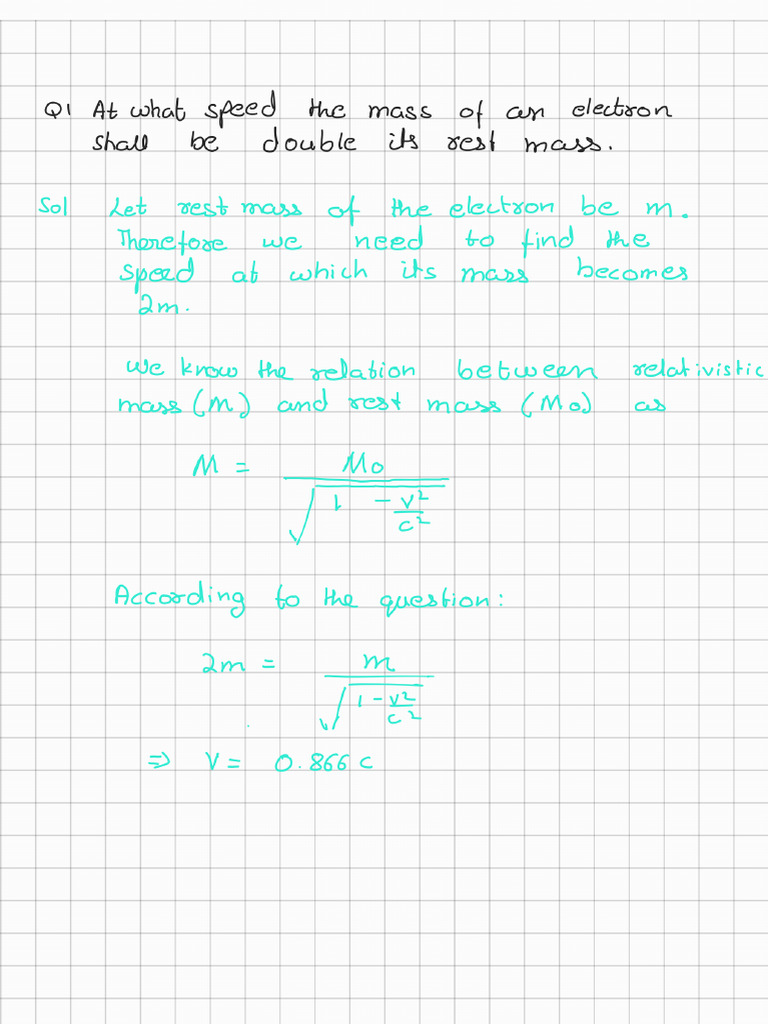 Q1 At what speed the mass of an electron
shall be double its rest mass.
Sol Let rest mass of the electron be m.
Therefore we need to find the
speed at which its mass becomes
2m.
we know the relation between relativistic
mass (M) and rest mass (Mo) as
M = Mo / √(1 - v²/c²)
According to the question:
2m = m / √(1 - v²/c²)
⇒ V = 0.866 c